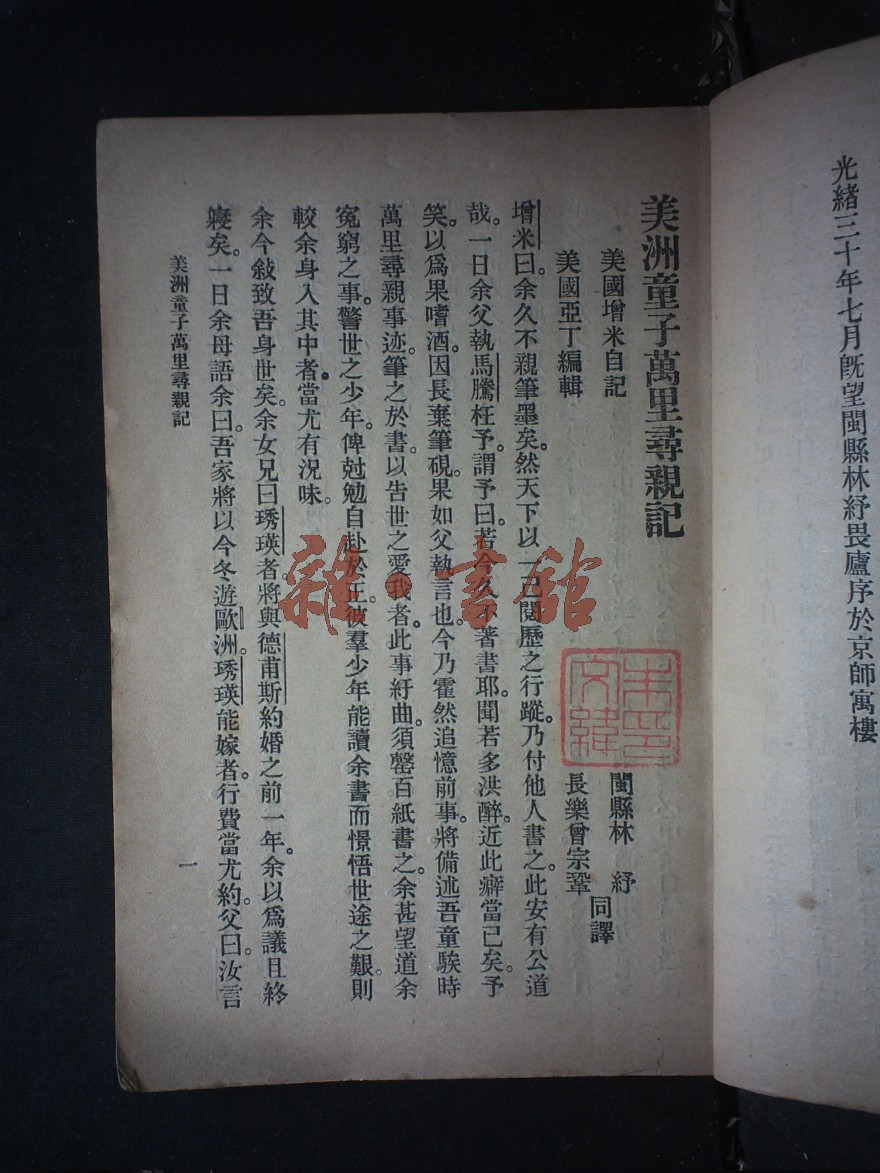 光緒三十年七月既望閩縣林紓畏廬序於京師寓樓
美洲童子萬里尋親記
美國增米自記
美國亞丁編輯
閩縣林　紓
長樂曾宗鞏
同譯
增米曰。余久不親筆墨矣。然天下以一己閱歷之行蹤。乃付他人書之。此安有公道
哉。一日余父執馬騰枉予。謂予曰。若今久不著書耶。聞若多洪醉。近此癖當已矣。予
笑。以爲果嗜酒。因長棄筆硯。果如父執言也。今乃霍然追憶前事。將備述吾童騃時
萬里尋親事迹。筆之於書。以告世之愛我者。此事紆曲。須罄百紙書之。余甚望道余
冤窮之事。警世之少年。俾尅勉自赴於正。彼羣少年能讀余書而憬悟世途之艱。則
較余身入其中者。當尤有況味。
余今敍致吾身世矣。余女兄曰琇瑛者。將與德甫斯約婚之前一年。余以爲議且終
寢矣。一日余母語余曰。吾家將以今冬遊歐洲。琇瑛能嫁者。行費當尤約。父曰。汝言
美洲童子萬里尋親記
一
雜·書館